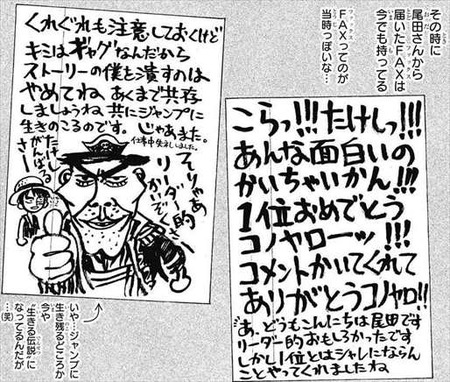 その時に
尾田さんから
届いたFAXは
今でも持ってる
FAXってのが
当時っぽいな…
こらっ!!!たけしっ!!!
あんな面白いの
かいちゃいかん!!!
1位おめでとう
コノヤローッ!!!
コメントかいてくれて
ありがとうコノヤロ!!
あ、どうもこんにちは尾田です
リーダー的おもしろかったです
しかし1位とはシャレにならん
ことやってくれましたね
くれぐれも注意しておくけど
キミはギャグなんだから
ストーリーの僕を潰すのは
やめてね、あくまで共存
しましょうね、共にジャンプに
生きのころのです。
じゃあまた。
仕事中失礼しました。
そりゃあ
リーダー的さ
かいぞく
たけし
がんばる
さー
いや…ジャンプに
生き残るどころか
今や
“生きる伝説”に
なってるんだが
…(笑)